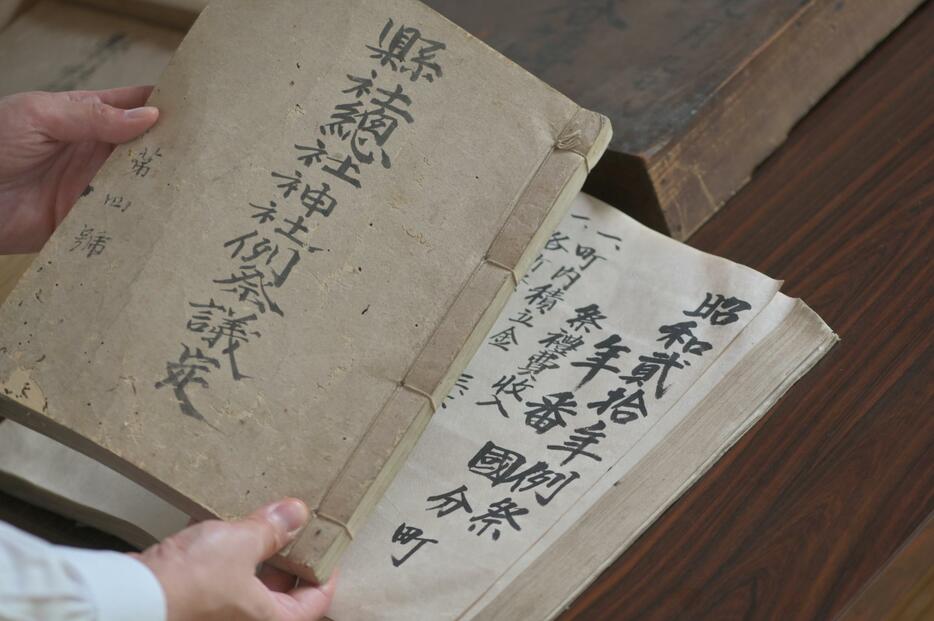 縣社總社神社例祭議定
第四號
昭和貳拾年例祭
年番 國分町
祭禮費收入
一、町内積立金